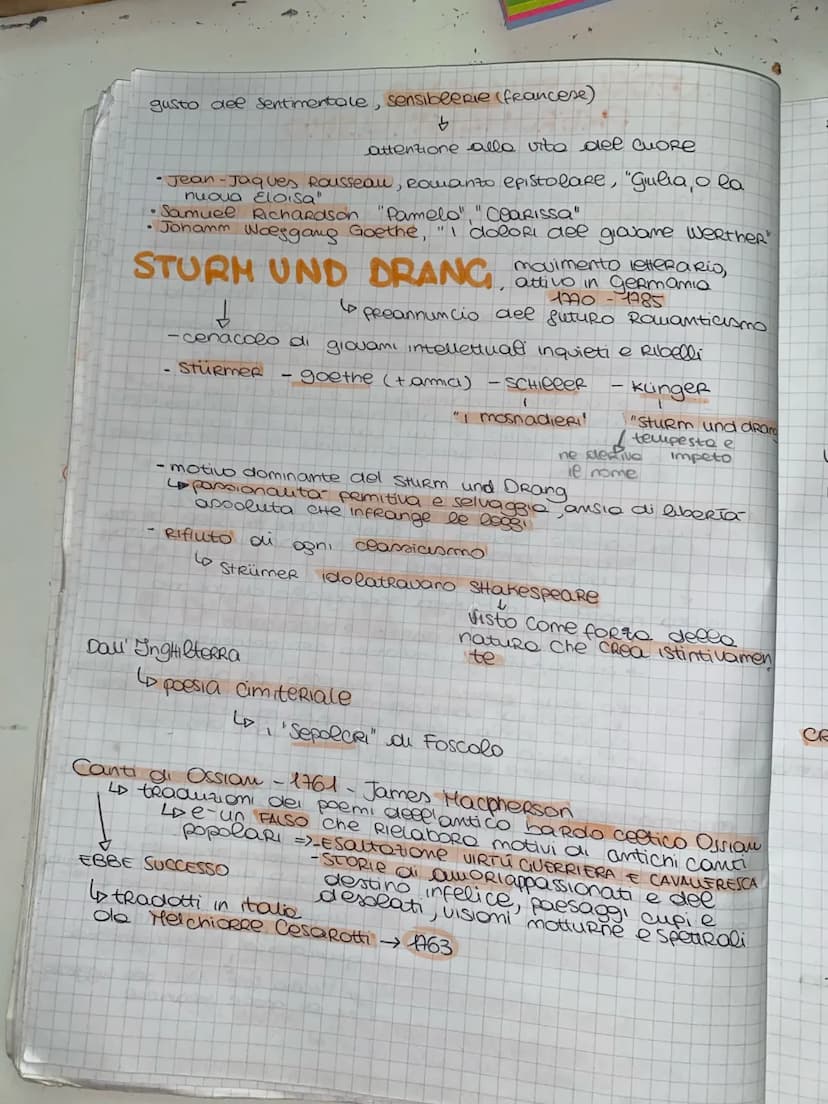 gusto del sentimentale, sensiblerie (francese)
↓
attenzione alla vita del cuore
• Jean-Jaques Rousseau, romanzo epistolare, "Giulia, o la
nuova Eloisa"
• Samuel Richardson "Pamela", "Clarissa"
• Johann Wolfgang Goethe, "I dolori del giovane Werther"
STURM UND DRANG, movimento letterario,
attivo in Germania
1770 - 1785
↳ preannuncio del futuro Romanticismo
- cenacolo di giovani intellettuali inquieti e ribelli
- Stürmer - goethe (+ amici) - SCHILLER - KLINGER
"I masnadieri" "Sturm und drang
tempesta e
ne deriva impeto
il nome
- motivo dominante del Sturm und Drang
↳ passionalità primitiva e selvaggia, ansia di libertà
assoluta che infrange le leggi
- Rifiuto di ogni classicismo
↳ Strümer idolatravano Shakespeare
↓
visto come forza della
natura che crea istintivamen
te
Dall'Inghilterra
↳ poesia cimiteriale
↳ i "Sepolcri" di Foscolo
Canti di Ossian - 1761 - James Macpherson
↳ traduzioni dei poemi dell'antico bardo celtico Ossian
↳ e-un FALSO che rielabora motivi di antichi canti
popolari => - Esaltazione VIRTÚ GUERRIERA E CAVALLERESCA
EBBE SUCCESSO - STORIE di amori appassionati e del
destino infelice, paesaggi cupi e
↳ tradotti in italia desolati, visioni notturne e spettrali
da Melchiorre Cesarotti → 1763
CR